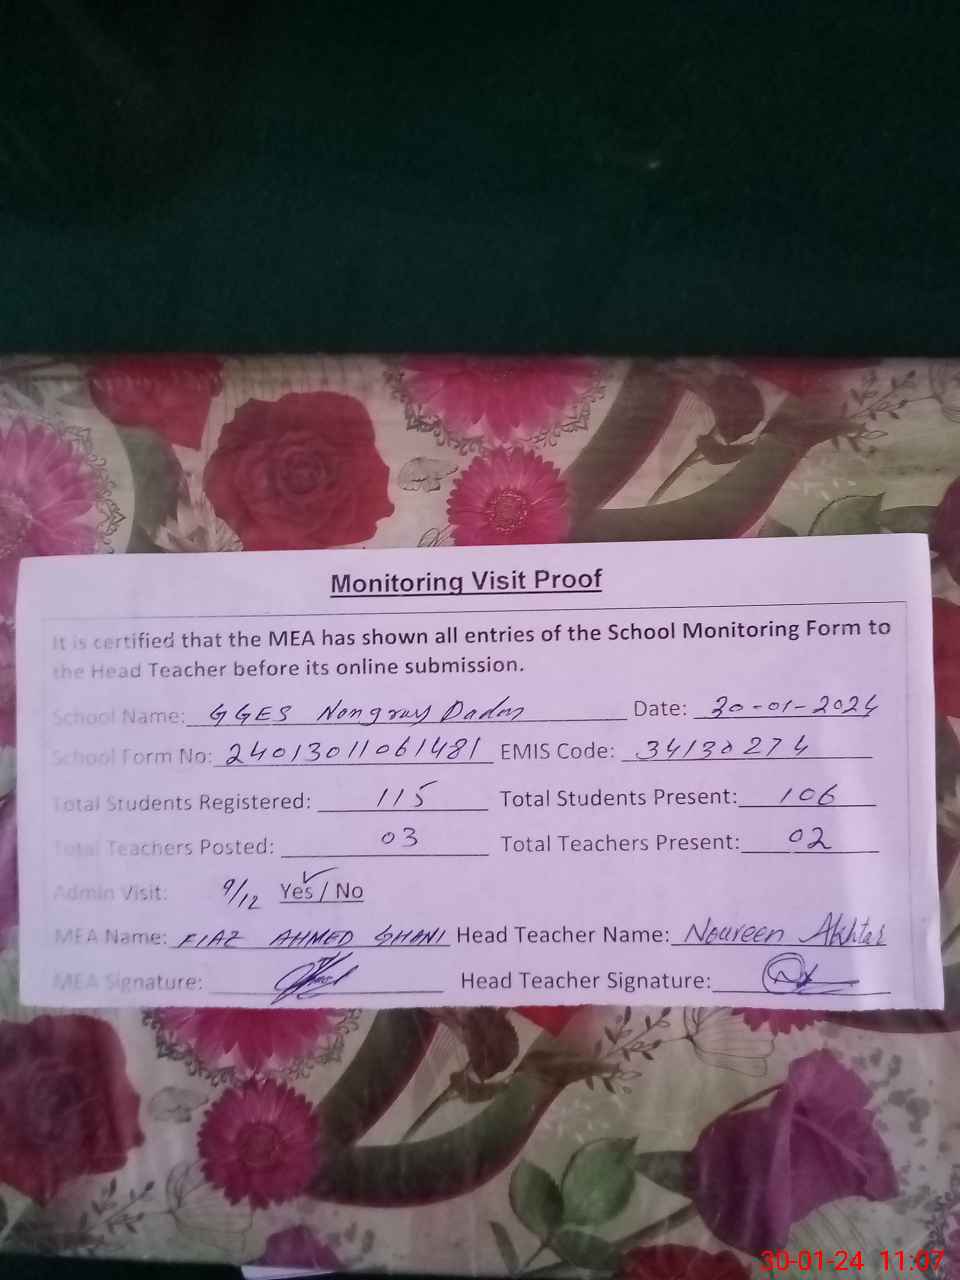 Monitoring Visit Proof
It is certified that the MEA has shown all entries of the School Monitoring Form to
the Head Teacher before its online submission.
School Name: GGES Nongray Dadan Date: 30-01-2024
School Form No: 24013011061481 EMIS Code: 34130274
Total Students Registered: 115 Total Students Present: 106
Total Teachers Posted: 03 Total Teachers Present: 02
Admin Visit: 9/12 Yes / No
MEA Name: FIAZ AHMED GHANI Head Teacher Name: Noureen Akhtar
MEA Signature: Head Teacher Signature:
30-01-24 11:07